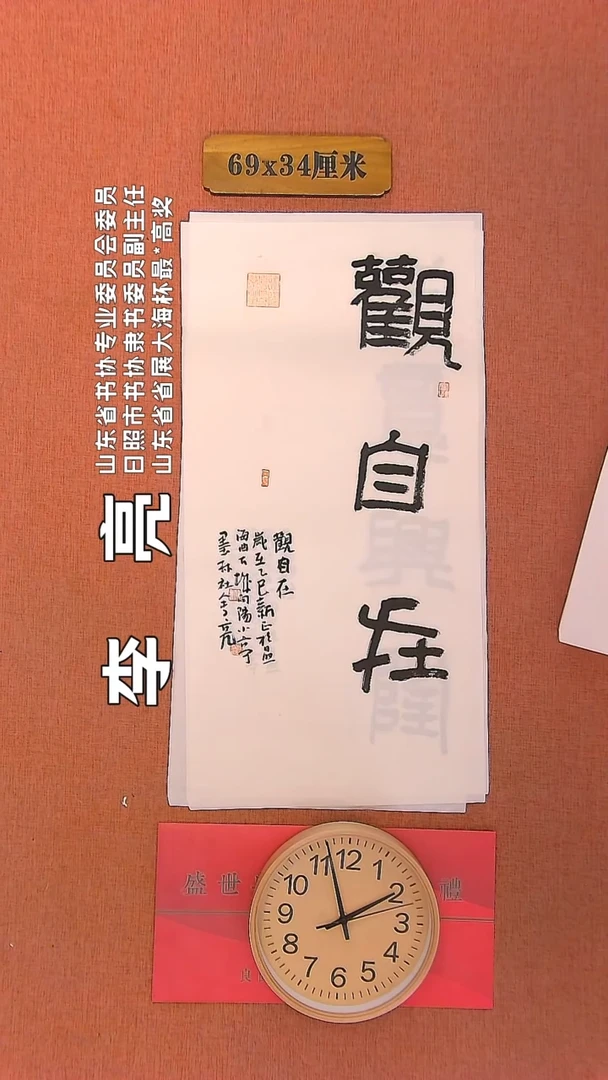 69x34厘米
觀自在
觀自在
歲在乙巳新正於日照
山东省书协专业委员会委员
日照市书协隶书委员副主任
山东省省展大海杯最*高奖
李 亮
盛世 禮
良
12
1
2
3
4
5
6
7
8
9
10
11